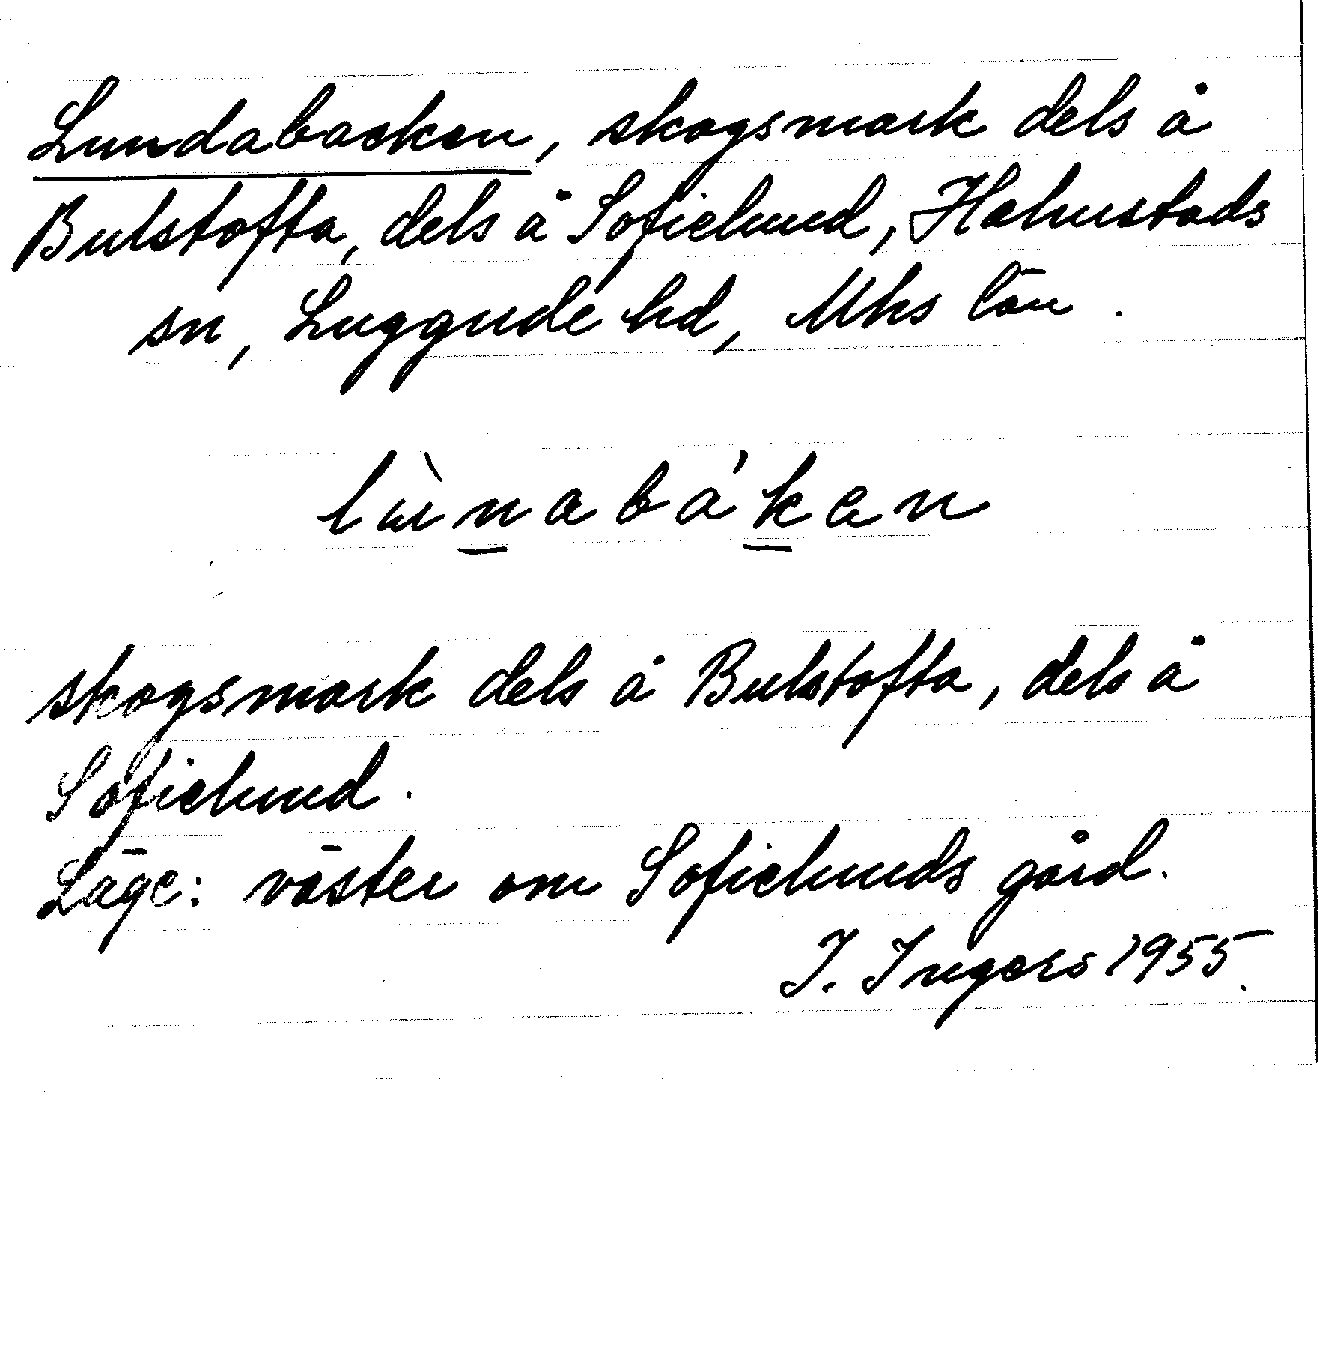 Lundabacken, skogsmark dels å
Bulstofta, dels å Sofielund, Halmstads
sn, Luggude hd, Mhs län.
lùnabáken
skogsmark dels å Bulstofta, dels å
Sofielund.
Läge: väster om Sofielunds gård.
I. Ingers 1955.